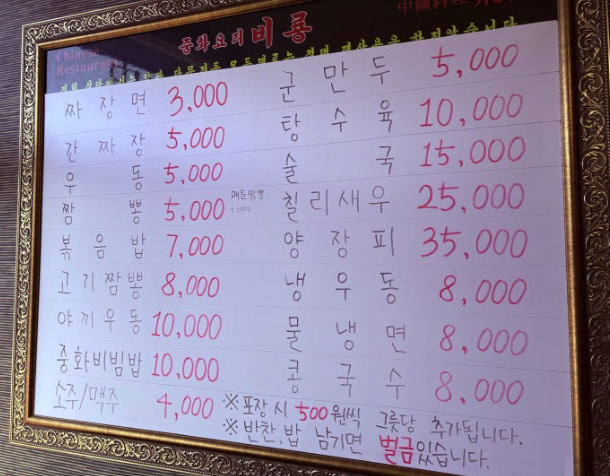 중화요리 비룡
Chinese
Restaurant
짜장면 3,000
간짜장 5,000
우동 5,000
짬뽕 5,000
볶음밥 7,000
고기짬뽕 8,000
야끼우동 10,000
중화비빔밥 10,000
소주/맥주 4,000
군만두 5,000
탕수육 10,000
술국 15,000
칠리새우 25,000
양장피 35,000
냉우동 8,000
물냉면 8,000
콩국수 8,000
※ 포장 시 500원씩 그릇당 추가됩니다.
※ 반찬,밥 남기면 벌금있습니다.